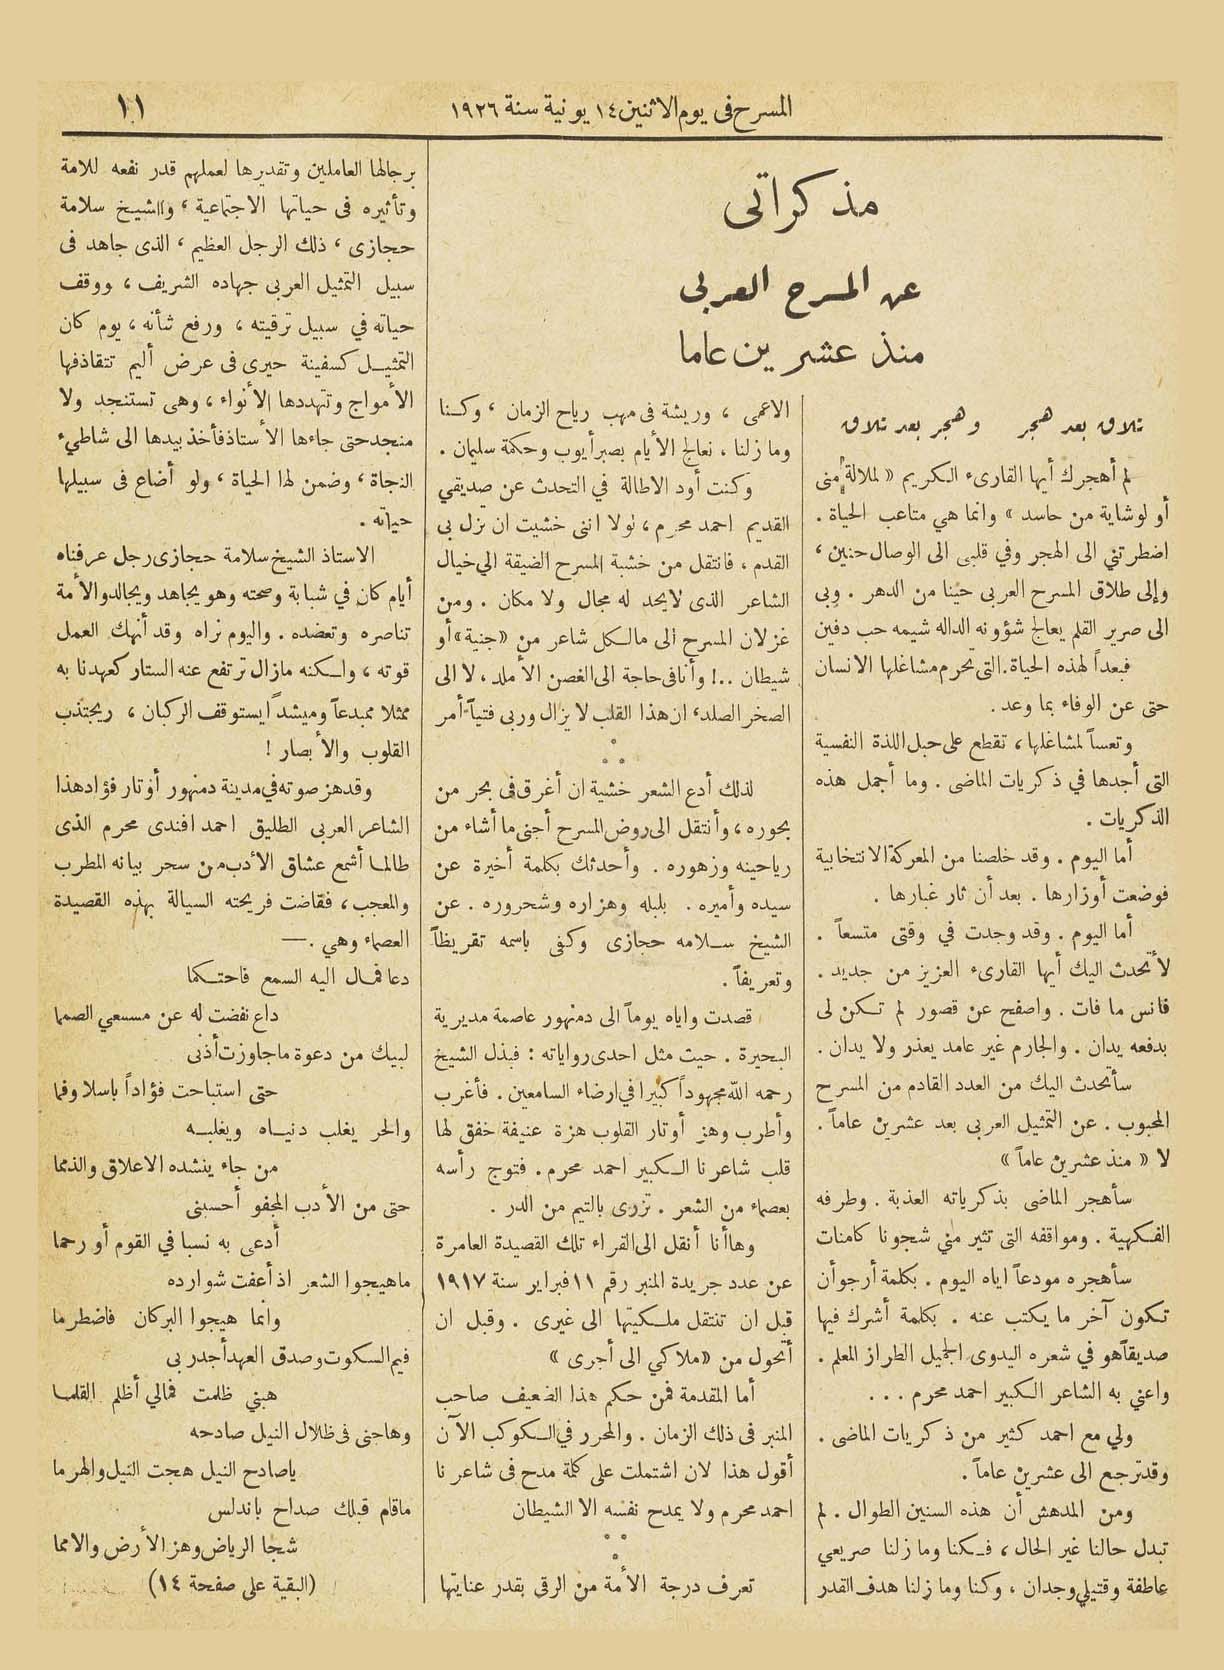 المسرح فى يوم الاثنين ١٤ يونية سنة ١٩٢٦
١١
مذكراتى
عن المسرح العربى
منذ عشرين عاما
تلاق بعد هجر وهجر بعد تلاق
لم أهجرك أيها القارىء الكريم « لملالة منى
أو لوشاية من حاسد » وانما هي متاعب الحياة .
اضطرتني الى الهجر وفي قلبى الى الوصال حنين ،
وإلى طلاق المسرح العربى حينا من الدهر . وبى
الى صرير القلم يعالج شؤونه الداله شيمه حب دفين
فبعداً لهذه الحياة . التى تحرم مشاغلها الانسان
حتى عن الوفاء بما وعد .
وتعساً لمشاغلها ، تقطع على حبل اللذة النفسية
التى أجدها في ذكريات الماضى . وما أجمل هذه
الذكريات .
أما اليوم . وقد خلصنا من المعركة الانتخابية
فوضعت أوزارها . بعد أن ثار غبارها .
أما اليوم . وقد وجدت في وقتى متسعاً .
لأتحدث اليك أيها القارىء العزيز من جديد .
فانس ما فات . واصفح عن قصور لم تكن لى
بدفعه يدان . والجارم غير عامد يعذر ولا يدان .
سأتحدث اليك من العدد القادم من المسرح
المحبوب . عن التمثيل العربى بعد عشرين عاماً .
لا « منذ عشرين عاماً »
سأهجر الماضى بذكرياته العذبة . وطرفه
الفكهية . ومواقفه التى تثير مني شجونا كامنات
سأهجره مودعاً اياه اليوم . بكلمة أرجو أن
تكون آخر ما يكتب عنه . بكلمة أشرك فيها
صديقاً هو في شعره اليدوى الجميل الطراز المعلم .
واعني به الشاعر الكبير احمد محرم . . .
ولي مع احمد كثير من ذكريات الماضى .
وقد ترجع الى عشرين عاماً .
ومن المدهش أن هذه السنين الطوال . لم
تبدل حالنا غير الحال ، فكنا وما زلنا صريعي
عاطفة وقتيلي وجدان ، وكنا وما زلنا هدف القدر
الاعمى ، وريشة فى مهب رياح الزمان ، وكنا
وما زلنا ، نعالج الأيام بصبر أيوب وحكمة سليمان .
وكنت أود الاطالة في التحدث عن صديقي
القديم احمد محرم ، لولا اننى خشيت ان تزل بى
القدم ، فانتقل من خشبة المسرح الضيقة الي خيال
الشاعر الذى لايحد له مجال ولا مكان . ومن
غزلان المسرح الى مالكل شاعر من «جنية» أو
شيطان ..! وأنا فى حاجة الى الغصن الأملد ، لا الى
الصخر الصلد ، ان هذا القلب لا يزال وربى فتياً أمر
لذلك أدع الشعر خشية ان أغرق فى بحر من
بحوره ، وأنتقل الى روض المسرح أجنى ما أشاء من
رياحينه وزهوره . وأحدثك بكلمة أخيرة عن
سيده وأميره . بلبله وهزاره وشحروره . عن
الشيخ سلامه حجازى وكفى باسمه تقريظاً
وتعريفاً .
قصدت واياه يوماً الى دمنهور عاصمة مديرية
البحيرة . حيث مثل احدى رواياته : فبذل الشيخ
رحمه الله مجهوداً كبيرا في ارضاء السامعين . فأغرب
وأطرب وهز أوتار القلوب هزة عنيفة خفق لها
قلب شاعرنا الكبير احمد محرم . فتوج رأسه
بعصماء من الشعر . تزرى بالتيم من الدر .
وهاأنا أنقل الى القراء تلك القصيدة العامرة
عن عدد جريدة المنبر رقم ١١ فبراير سنة ١٩١٧
قبل ان تنتقل ملكيتها الى غيرى . وقبل ان
أتحول من «ملاكي الى أجرى »
أما المقدمة فمن حكم هذا الضعيف صاحب
المنبر فى ذلك الزمان . والمحرر في الكوكب الآن
أقول هذا لان اشتملت على كلمة مدح فى شاعرنا
احمد محرم ولا يمدح نفسه الا الشيطان
تعرف درجة الأمة من الرقى بقدر عنايتها
برجالها العاملين وتقديرها لعملهم قدر نفعه للامة
وتأثيره فى حياتها الاجتماعية ، والشيخ سلامة
حجازى ، ذلك الرجل العظيم ، الذى جاهد فى
سبيل التمثيل العربى جهاده الشريف ، ووقف
حياته في سبيل ترقيته ، ورفع شأنه ، يوم كان
التمثيل كسفينة حيرى فى عرض أليم تتقاذفها
الأمواج وتتهددها الأنواء ، وهى تستنجد ولا
منجد حتى جاءها الأستاذ فأخذ بيدها الى شاطيء
النجاة ، وضمن لها الحياة ، ولو أضاع فى سبيلها
حياته .
الاستاذ الشيخ سلامة حجازى رجل عرفناه
أيام كان في شبابة وصحته وهو يجاهد ويجالد والأمة
تناصره وتعضده . واليوم نراه وقد أنهك العمل
قوته ، ولكنه مازال ترتفع عنه الستار كعهدنا به
ممثلا مبدعاً وميشداً يستوقف الركبان ، ويجتذب
القلوب والأبصار !
وقد هز صوته في مدينة دمنهور أوتار فؤاد هذا
الشاعر العربى الطليق احمد افندى محرم الذى
طالما أشمع عشاق الأدب من سحر بيانه المطرب
والمعجب ، ففاضت فريحته السيالة بهذه القصيدة
العصماء وهي . —
دعا فمال اليه السمع فاحتكما
داع نفضت له عن مسمعي الصمما
لبيك من دعوة ما جاوزت أذنى
حتى استباحت فؤاداً باسلا وفما
والحر يغلب دنياه ويغلبه
من جاء ينشده الاعلاق والذمما
حتى من الأدب المجفو أحسبنى
أدعى به نسبا في القوم أو رحما
ما هيجوا الشعر اذ أعفت شوارده
وانما هيجوا البركان فاضطرما
فيم السكوت وصدق العهد أجدر بى
هبني ظلمت فمالي أظلم القلما
وهاجنى فى ظلال النيل صادحه
ياصادح النيل هجت النيل والهرما
ماقام قبلك صداح باندلس
شجا الرياض وهز الأرض والامما
(البقية على صفحة ١٤)